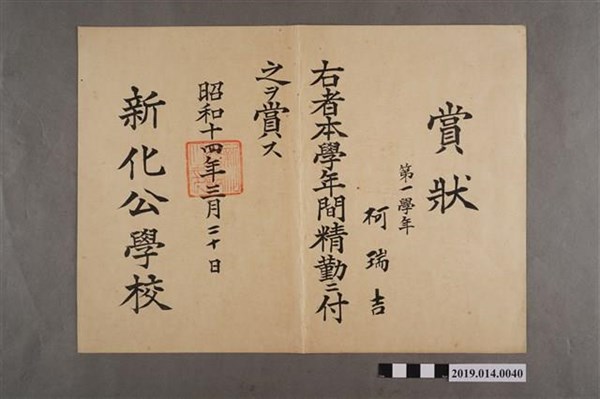 賞狀
第一學年
柯瑞吉
右者本學年間精勤ニ付
之ヲ賞ス
昭和十四年三月二十日
新化公學校
2019.014.0040